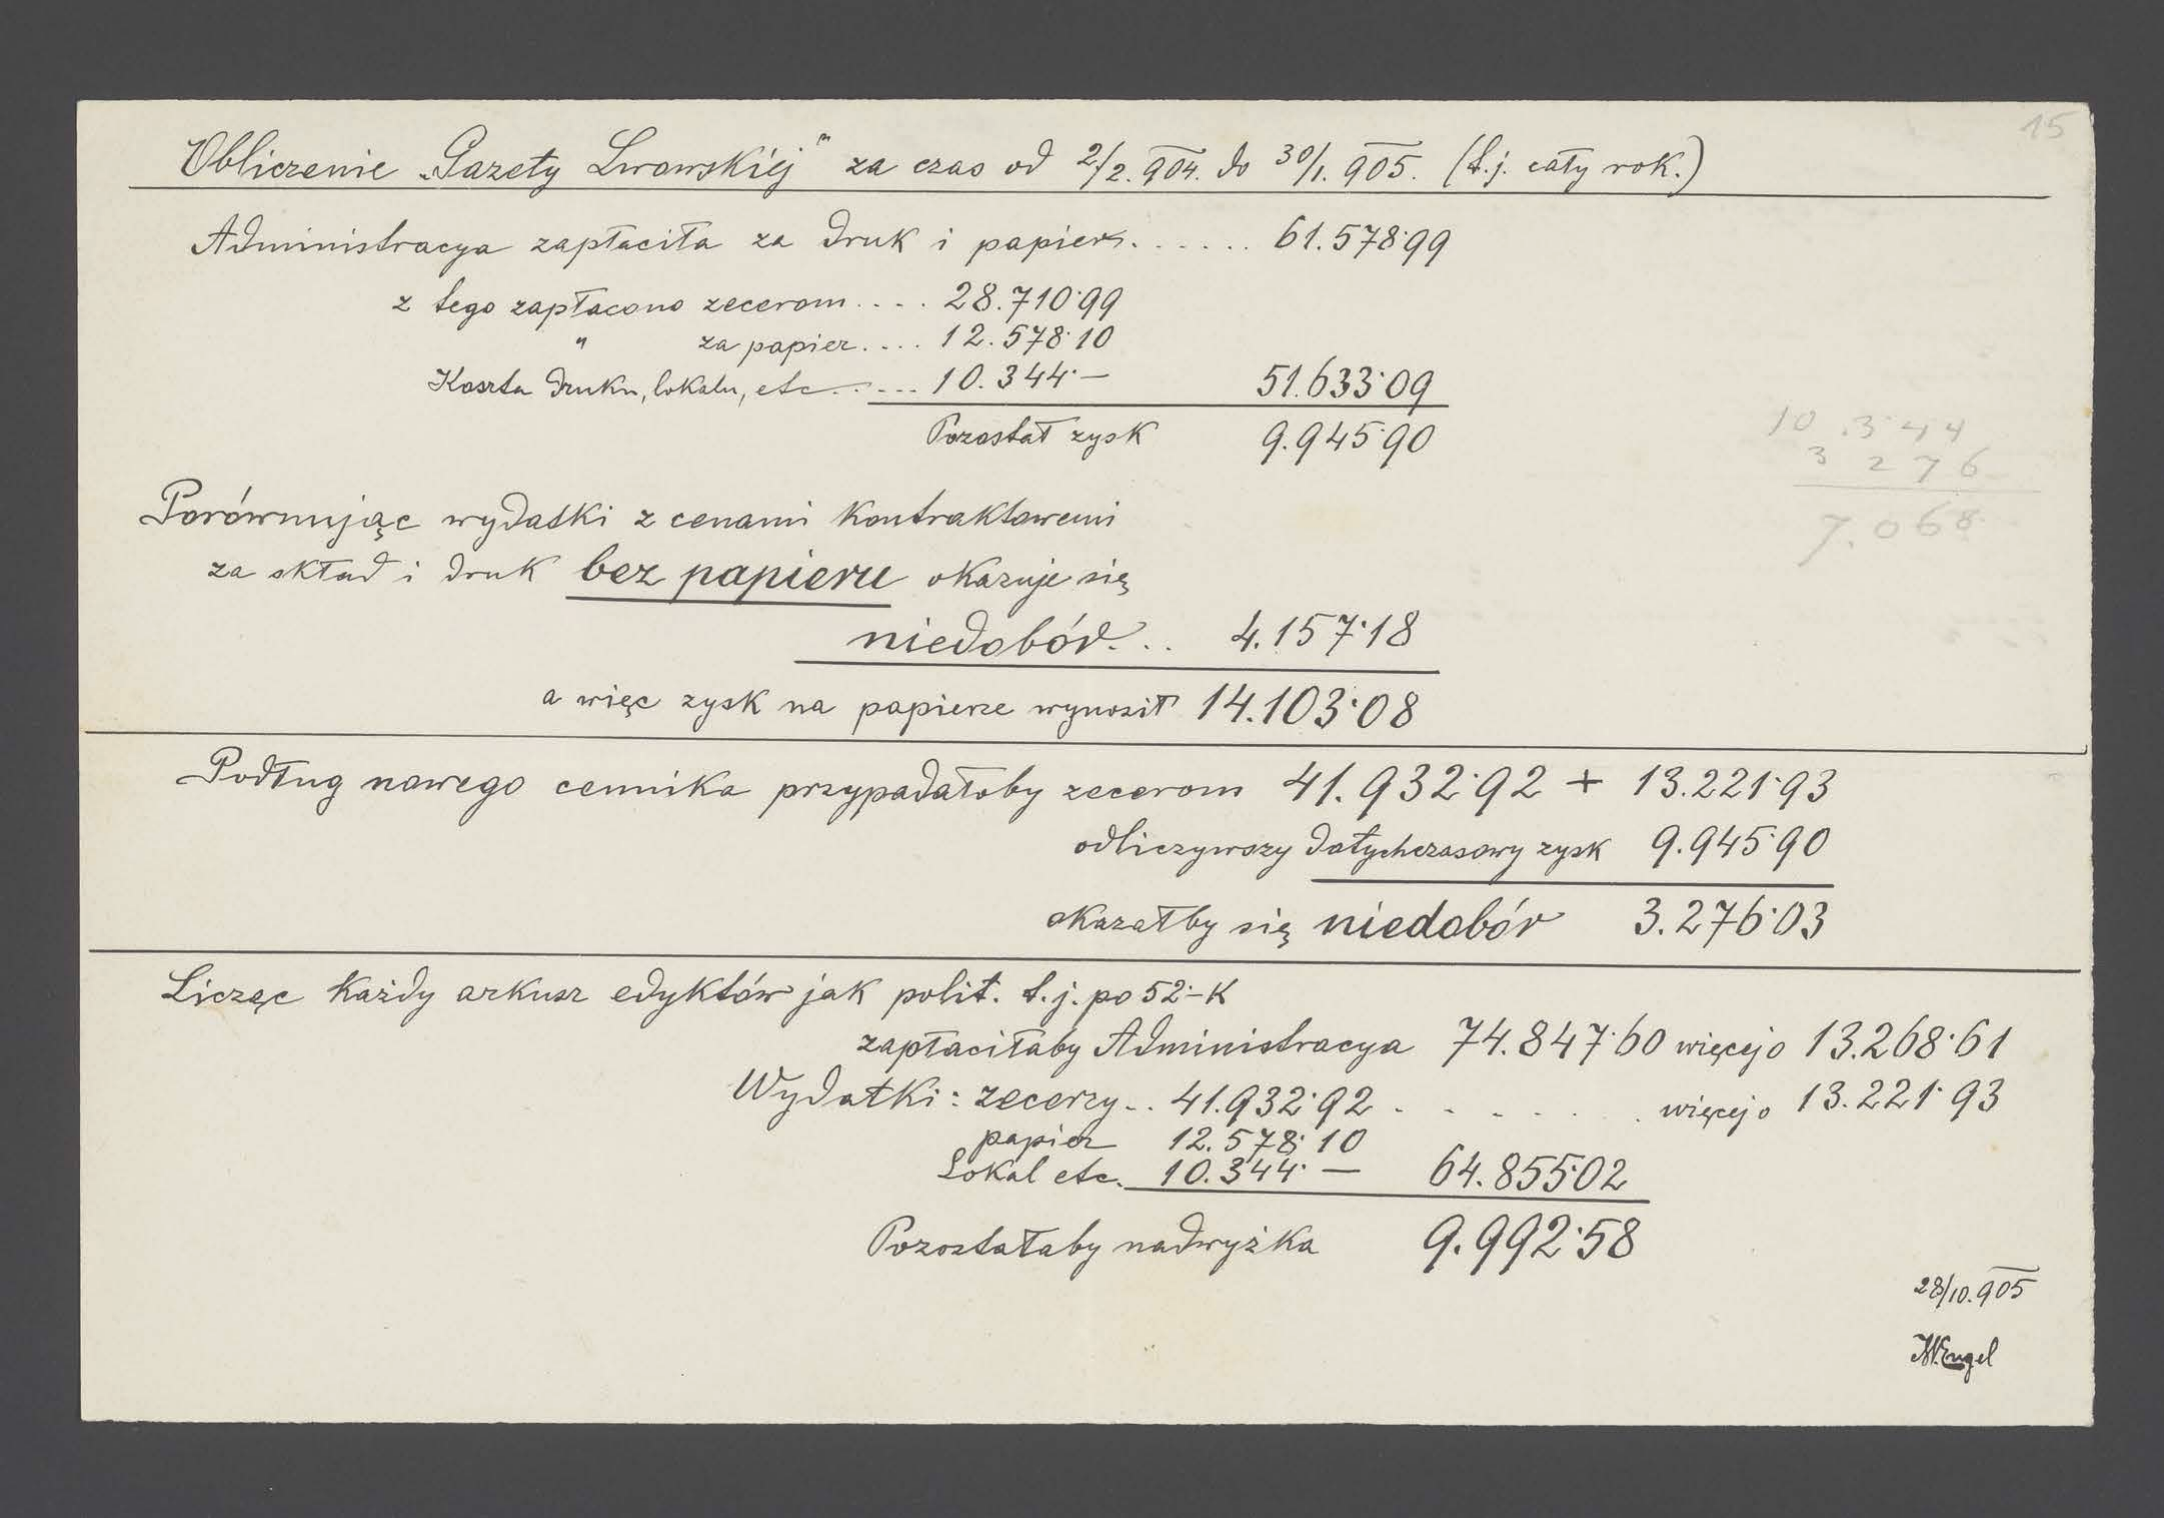 15
Obliczenie „Gazety Lwowskiéj" za czas od 2/2. 904. do 30/1. 905. (t.j. cały rok.)
Administracya zapłaciła za druk i papier. . . . . . 61.578·99
z tego zapłacono zecerom . . . . 28.710·99
" za papier. . . . 12.578·10
Koszta druku, lokalu, etc. . . . . 10.344·— 51.633·09
Pozostał zysk 9.945·90
10.344
3 276
7.068
Porównując wydatki z cenami kontraktowemi
za skład i druk bez papieru okazuje się
niedobór. . . 4.157·18
a więc zysk na papierze wynosił 14.103·08
Podług nowego cennika przypadałoby zecerom 41.932·92 + 13.221·93
odliczywszy dotychczasowy zysk 9.945·90
okazałby się niedobór 3.276·03
Licząc każdy arkusz edyktów jak polit. t.j. po 52·– K
zapłaciłaby Administracya 74.847·60 więcej o 13.268·61
Wydatki: zecerzy . . 41.932·92 . . . . . . . więcej o 13.221·93
papier 12.578·10
Lokal etc. 10.344·— 64.855·02
Pozostałaby nadwyżka 9.992·58
28/10. 905
Engel